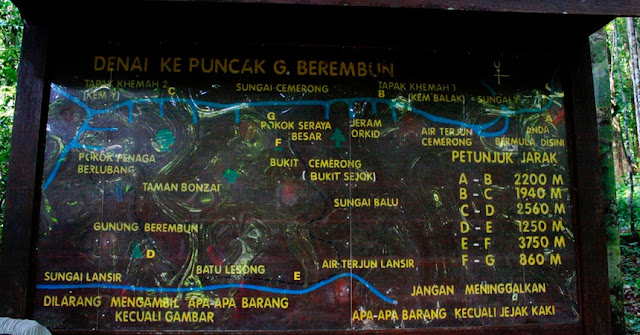 DENAI KE PUNCAK G. BEREMBUN
TAPAK KHEMAH 2
(KEM Y)
C
SUNGAI CEMERONG
TAPAK KHEMAH 1
B (KEM BALAK)
SUNGAI
A
G
POKOK SERAYA
BESAR
JERAM
ORKID
AIR TERJUN
CEMERONG
ANDA
BERMULA DISINI
F
POKOK PENAGA
BERLUBANG
BUKIT CEMERONG
(BUKIT SEJOK)
TAMAN BONZAI
SUNGAI BALU
PETUNJUK JARAK
A - B 2200 M
B - C 1940 M
C - D 2560 M
D - E 1250 M
E - F 3750 M
F - G 860 M
GUNUNG BEREMBUN
D
BATU LESONG
E
AIR TERJUN LANSIR
SUNGAI LANSIR
DILARANG MENGAMBIL APA-APA BARANG
KECUALI GAMBAR
JANGAN MENINGGALKAN
APA-APA BARANG KECUALI JEJAK KAKI